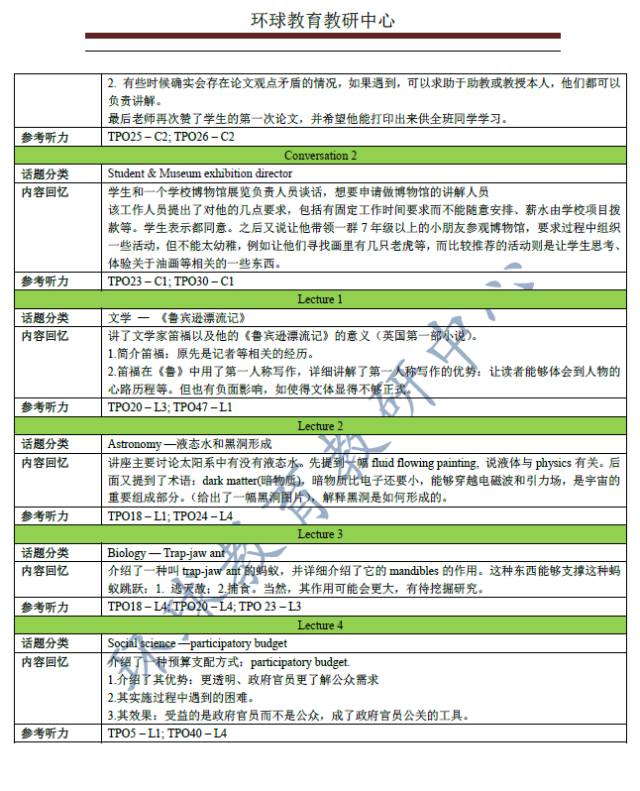 环球教育教研中心
2. 有些时候确实会存在论文观点矛盾的情况，如果遇到，可以求助于助教或教授本人，他们都可以
负责讲解。
最后老师再次赞了学生的第一次论文，并希望他能打印出来供全班同学学习。
参考听力 TPO25 – C2; TPO26 – C2
Conversation 2
话题分类 Student & Museum exhibition director
内容回忆 学生和一个学校博物馆展览负责人员谈话，想要申请做博物馆的讲解人员
该工作人员提出了对他的几点要求，包括有固定工作时间要求而不能随意安排、薪水由学校项目拨
款等。学生表示都同意。之后又说让他带领一群 7 年级以上的小朋友参观博物馆，要求过程中组织
一些活动，但不能太幼稚，例如让他们寻找画里有几只老虎等，而比较推荐的活动则是让学生思考、
体验关于油画等相关的一些东西。
参考听力 TPO23 – C1; TPO30 – C1
Lecture 1
话题分类 文学 — 《鲁宾逊漂流记》
内容回忆 讲了文学家笛福以及他的《鲁宾逊漂流记》的意义（英国第一部小说）。
1.简介笛福：原先是记者等相关的经历。
2.笛福在《鲁》中用了第一人称写作，详细讲解了第一人称写作的优势：让读者能够体会到人物的
心路历程等。但也有负面影响，如使得文体显得不够正式。
参考听力 TPO20 – L3; TPO47 – L1
Lecture 2
话题分类 Astronomy —液态水和黑洞形成
内容回忆 讲座主要讨论太阳系中有没有液态水。先提到一幅 fluid flowing painting, 说液体与 physics 有关。后
面又提到了术语：dark matter(暗物质)，暗物质比电子还要小，能够穿越电磁波和引力场，是宇宙的
重要组成部分。（给出了一幅黑洞图片），解释黑洞是如何形成的。
参考听力 TPO18 – L1; TPO24 – L4
Lecture 3
话题分类 Biology — Trap-jaw ant
内容回忆 介绍了一种叫 trap-jaw ant 的蚂蚁，并详细介绍了它的 mandibles 的作用。这种东西能够支撑这种蚂
蚁跳跃：1. 逃天敌；2.捕食。当然，其作用可能会更大，有待挖掘研究。
参考听力 TPO18 – L4; TPO20 – L4; TPO 23 – L3
Lecture 4
话题分类 Social science —participatory budget
内容回忆 介绍了一种预算支配方式：participatory budget.
1.介绍了其优势：更透明、政府官员更了解公众需求
2.其实施过程中遇到的困难。
3.其效果：受益的是政府官员而不是公众，成了政府官员公关的工具。
参考听力 TPO5 – L1; TPO40 – L4
环球教育教研中心